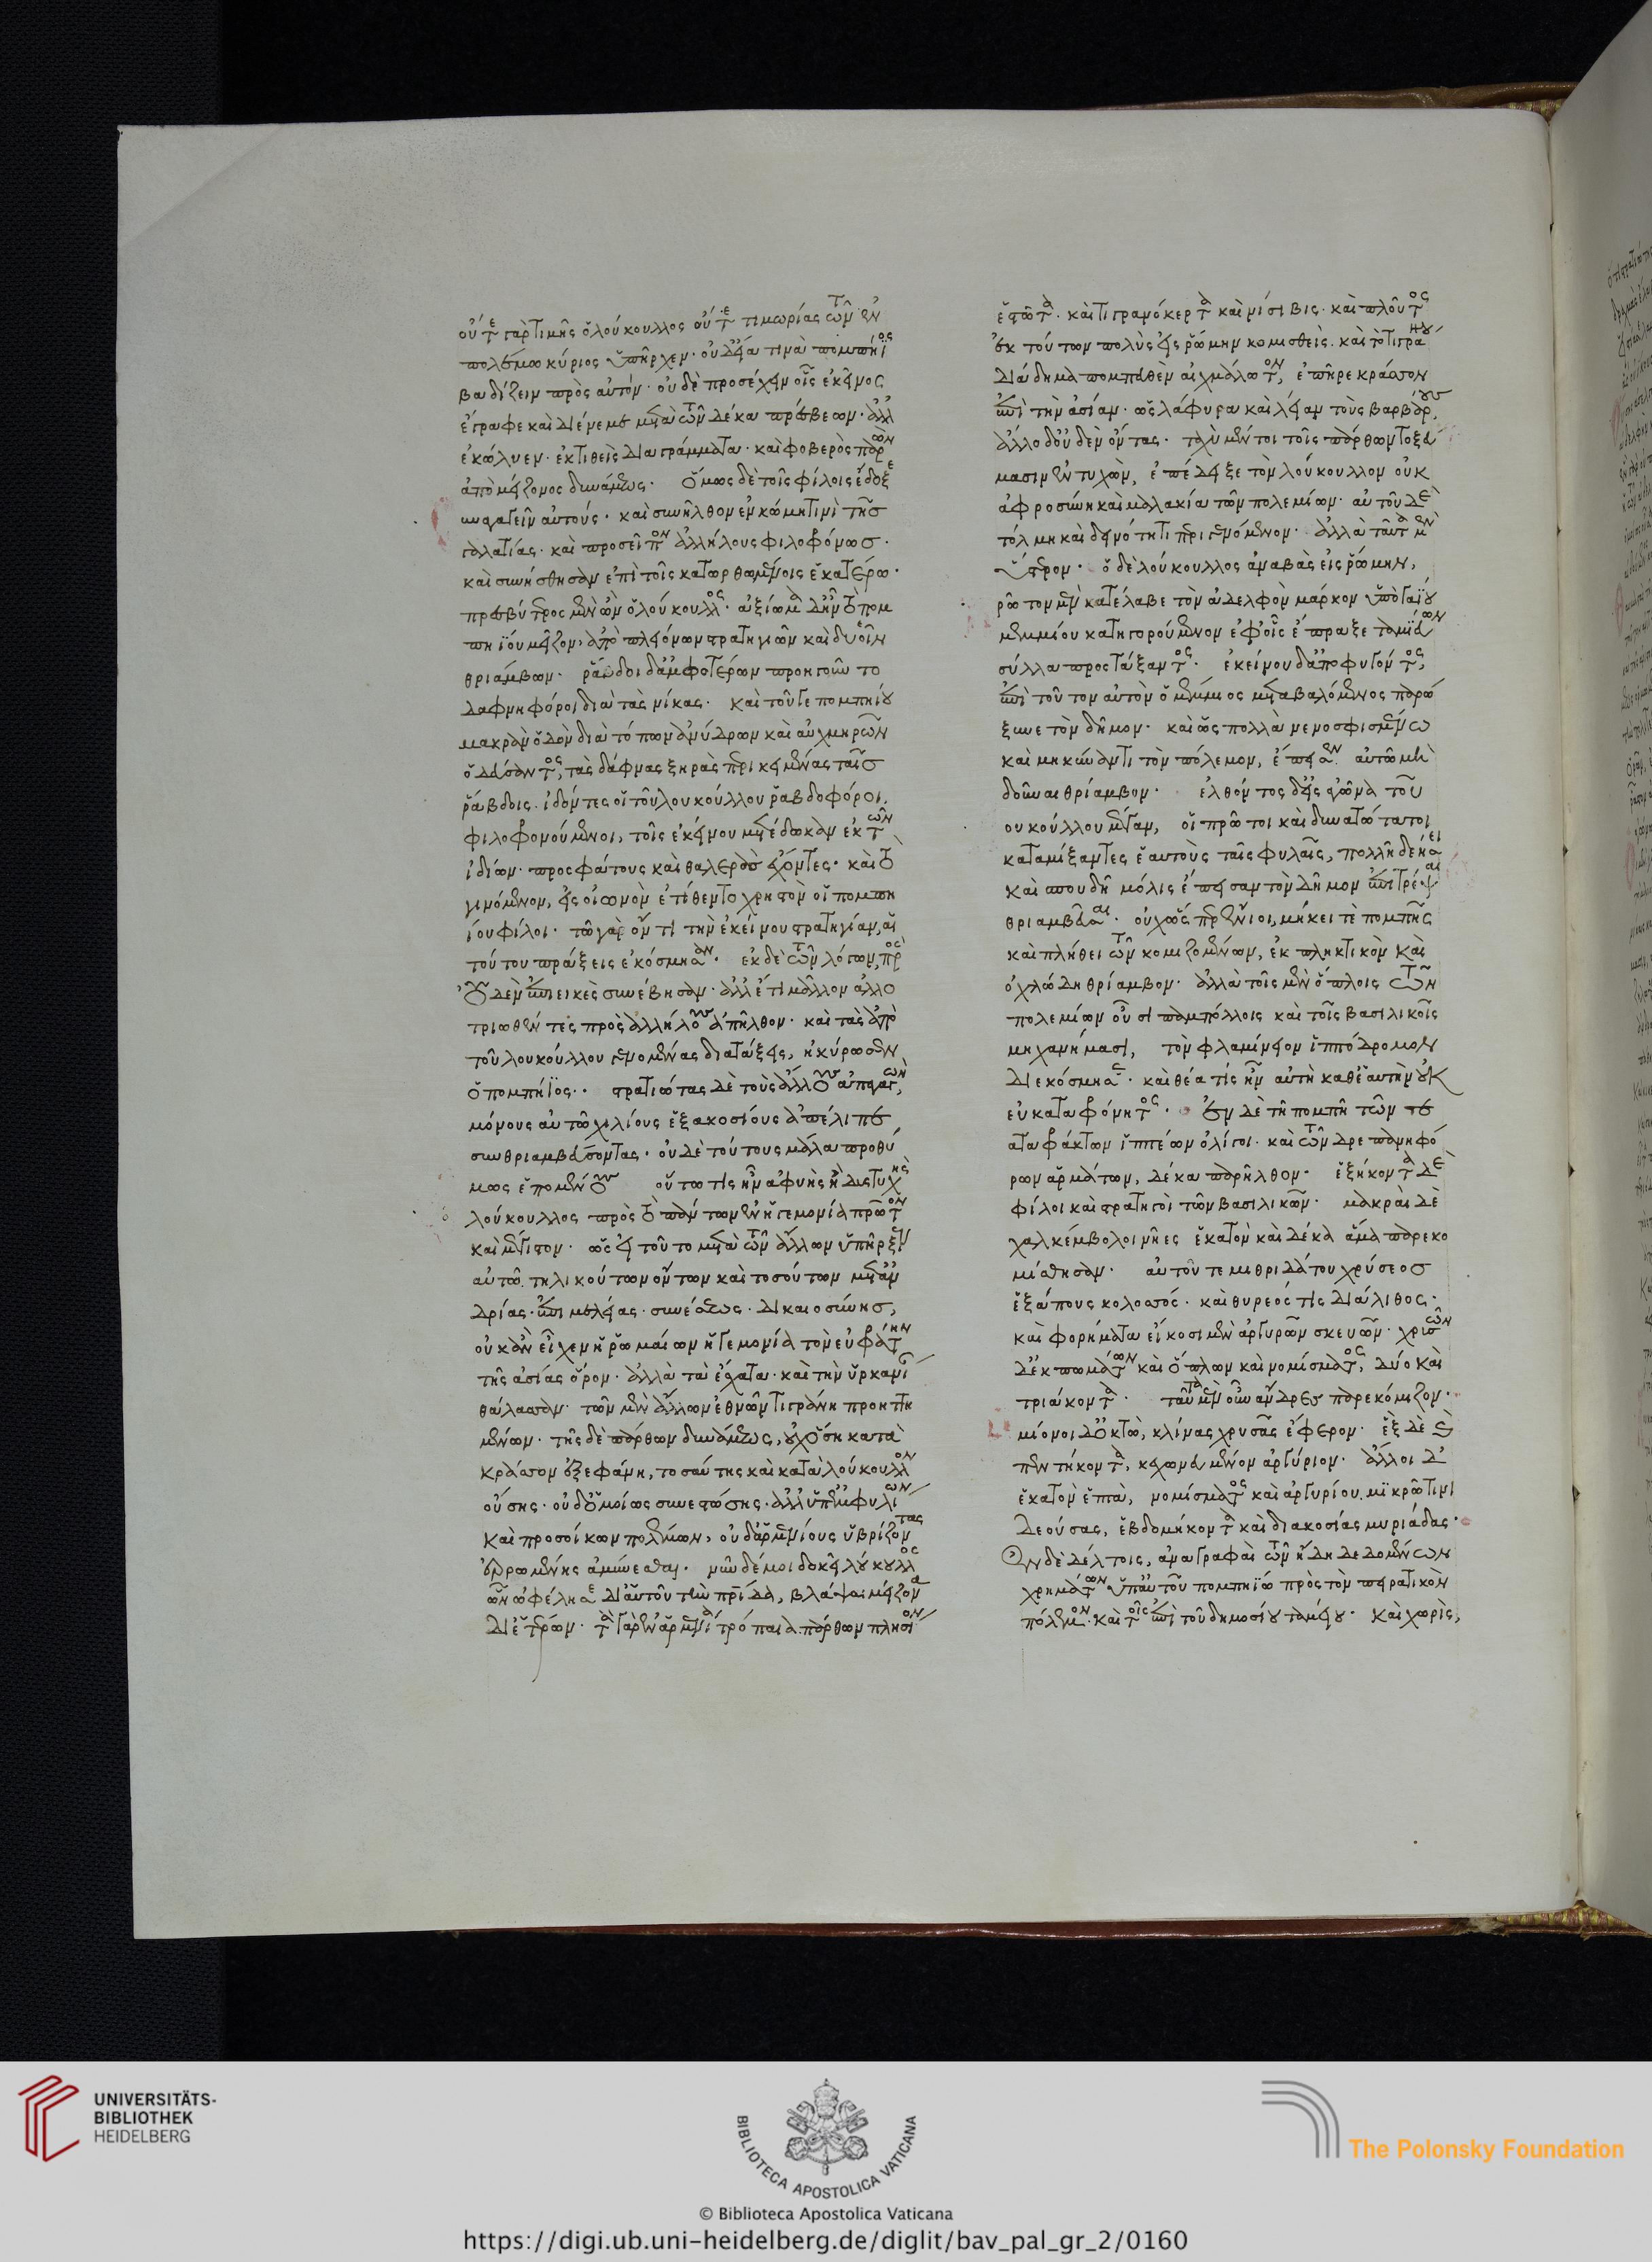 οὔτε γὰρ τιμῆς ὁ λούκουλλος οὔτε τιμωρίας τῶν ἐν
πολέμω κύριος ὑπῆρχεν· οὐδ' εἴα τινὰ πομπήιος
βαδίζειν πρὸς αὐτόν· οὐδὲ προσέχειν οἷς ἐκεῖνος
ἔγραφε καὶ διένειμε μετὰ τῶν δέκα πρέσβεων· ἀλλ'
ἐκώλυεν· ἐκτιθεὶς διαγράμματα· καὶ φοβερὸς παρὼν
ἀπὸ μείζονος δυνάμεως· ὅμως δὲ τοῖς φίλοις ἔδοξε
συναγαγεῖν αὐτούς· καὶ συνῆλθον ἐν κώμη τινὶ τῆς
γαλατίας· καὶ προσεῖπον ἀλλήλους φιλοφρόνως·
καὶ συνήσθησαν ἐπὶ τοῖς κατωρθωμένοις ἑκατέρω·
πρεσβύτερος μὲν ὢν ὁ λούκουλλος· ἀξίωμα δ' ἦν τὸ πομ
πηΐου μεῖζον, ἀπὸ πλειόνων στρατηγιῶν καὶ δυοῖν
θριάμβων· ῥάβδοι δ' ἀμφοτέρων προηγοῦντο
δαφνηφόροι διὰ τὰς νίκας· καὶ τοῦ γε πομπηίου
μακρὰν ὁδὸν διὰ τόπων ἀνύδρων καὶ αὐχμηρῶν
ὁδεύσαντος, τὰς δάφνας ξηρὰς περικειμένας ταῖς
ῥάβδοις ἰδόντες οἱ τοῦ λουκούλλου ῥαβδοφόροι,
φιλοφρονούμενοι, τοῖς ἐκείνου μετέδωκαν ἐκ τῶν
ἰδίων· προσφάτους καὶ θαλερὰς ἔχοντες· καὶ τὸ
γινόμενον, εἰς οἰωνὸν ἐτίθεντο χρηστὸν οἱ πομπη
ίου φίλοι· τῶ γὰρ ὄντι τὴν ἐκείνου στρατηγίαν, αἱ
τούτου πράξεις ἐκόσμησαν· ἐκ δὲ τῶν λόγων, πρὸς
οὐδὲν ἐπιεικὲς συνέβησαν· ἀλλ' ἔτι μᾶλλον ἀλλο
τριωθέντες πρὸς ἀλλήλους ἀπῆλθον· καὶ τὰς ἀπὸ
τοῦ λουκούλλου γενομένας διατάξεις, ἠκύρωσεν
ὁ πομπήϊος· στρατιώτας δὲ τοὺς ἄλλους ἀπαγαγών,
μόνους αὐτῶ χιλίους ἑξακοσίους ἀπέλιπε
συνθριαμβεύσοντας· οὐδὲ τούτους μάλα προθύ
μως ἑπομένους οὕτω τίς ἦν ἀφυὴς ἢ δυστυχὴς
λούκουλλος πρὸς τὸ πάντων ἐν ἡγεμονία πρῶτον
καὶ μέγιστον· ὡς εἰ τοῦτο μετὰ τῶν ἄλλων ὑπῆρξεν
αὐτῶ. τηλικούτων ὄντων καὶ τοσούτων μετ' ἀν
δρίας· ἐπιμελείας· συνέσεως· δικαιοσύνης,
οὐκ ἂν εἶχεν ἡ ῥωμαίων ἡγεμονία τὸν εὐφράτην
τῆς ἀσίας ὅρον· ἀλλὰ τὰ ἔσχατα· καὶ τὴν ὑρκανί
θάλασσαν· τῶν μὲν ἄλλων ἐθνῶν τιγράνη προηττη
μένων· τῆς δὲ πάρθων δυνάμεως, οὐχ ὅση κατὰ
κράσσον ἐξεφάνη, τοσαύτης καὶ κατὰ λούκουλλον
οὔσης· οὐδ' ὁμοίως συνεστώσης· ἀλλ' ὑπ' ἐμφυλίων
καὶ προσοίκων πολέμων, οὐδ' ἀρμενίους ὑβρίζοντας
ἐρρωμένης ἀμύνεσθαι· νῦν δέ μοι δοκεῖ λούκουλλος
ὧν ὠφέλησε δι' αὑτοῦ τὴν πατρίδα, βλάψαι μείζονα
δι' ἑτέρων· τὰ γὰρ ἐν ἀρμενία τρόπαια πάρθων πλησίον
ἑστῶτα· καὶ τιγρανόκερτα καὶ νίσιβις· καὶ πλοῦτος
ἐκ τούτων πολὺς εἰς ῥώμην κομισθείς· καὶ τὸ τιγράνου
διάδημα πομπευθὲν αἰχμάλωτον, ἐπῆρε κράσσον
ἐπὶ τὴν ἀσίαν· ὡς λάφυρα καὶ λείαν τοὺς βαρβάρους,
ἄλλο δ' οὐδὲν ὄντας· ταχὺ μέντοι τοῖς πάρθων τοξεύ
μασιν ἐντυχὼν, ἐπέδειξε τὸν λούκουλλον οὐκ
ἀφροσύνη καὶ μαλακία τῶν πολεμίων· αὐτοῦ δὲ
τόλμη καὶ δεινότητι περιγενόμενον· ἀλλὰ ταῦτα μὲν
ὕστερον· ὁ δὲ λούκουλλος ἀναβὰς εἰς ῥώμην,
πρῶτον μὲν κατέλαβε τὸν ἀδελφὸν μάρκον ὑπὸ γαΐου
μεμμίου κατηγορούμενον ἐφ' οἷς ἔπραξε ταμιεύων
σύλλα προστάξαντος· ἐκείνου δ' ἀποφυγόντος,
ἐπὶ τοῦτον αὐτὸν ὁ μέμμιος μεταβαλόμενος παρώ
ξυνε τὸν δῆμον· καὶ ὡς πολλὰ νενοσφισμένω
καὶ μηκύναντι τὸν πόλεμον, ἔπεισεν αὐτῶ μὴ
δοῦναι θρίαμβον· ἐλθόντος δ' εἰς ἀγῶνα τοῦ
ουκούλλου μέγαν, οἱ πρῶτοι καὶ δυνατώτατοι
καταμίξαντες ἑαυτοὺς ταῖς φυλαῖς, πολλῆ δεήσει
καὶ σπουδῆ μόλις ἔπεισαν τὸν δῆμον ἐπιτρέψαι
θριαμβεῦσαι· οὐχ ὡς πρ ἔνιοι, μήκει τὲ πομπῆς
καὶ πλήθει τῶν κομιζομένων, ἐκπληκτικὸν καὶ
ὀχλώδη θρίαμβον· ἀλλὰ τοῖς μὲν ὅπλοις τῶν
πολεμίων οὖσι παμπόλλοις καὶ τοῖς βασιλικοῖς
μηχανήμασι, τὸν φλαμίνειον ἱππόδρομον
διεκόσμησε· καὶ θέα τίς ἦν αὐτὴ καθ' ἑαυτὴν οὐκ
εὐκαταφρόνητος· ἐν δὲ τῆ πομπῆ τῶν τε
καταφράκτων ἱππέων ὀλίγοι· καὶ τῶν δρεπανηφό
ρων ἁρμάτων, δέκα παρῆλθον· ἑξήκοντα δὲ
φίλοι καὶ στρατηγοὶ τῶν βασιλικῶν· μακραὶ δὲ
χαλκέμβολοι νῆες ἑκατὸν καὶ δέκα ἅμα παρεκο
μίσθησαν· αὐτοῦ τε μιθριδάτου χρύσεος
ἑξάπους κολοσσός· καὶ θυρεός τις διάλιθος·
καὶ φορήματα εἴκοσι μὲν ἀργυρῶν σκευῶν· χρυσῶν
δ' ἐκπωμάτων καὶ ὅπλων καὶ νομίσματος, δύο καὶ
τριάκοντα· ταῦτα μὲν οὖν ἄνδρες παρεκόμιζον·
ἡμίονοι δ' ὀκτὼ, κλίνας χρυσᾶς ἔφερον· ἓξ δὲ καὶ
πεντήκοντα, κεχωνευμένον ἀργύριον· ἄλλοι δ'
ἑκατὸν ἑπτὰ, νομίσματος καὶ ἀργυρίου μικρῶ τινι
δεούσας, ἑβδομήκοντα καὶ διακοσίας μυριάδας·
ἐν δὲ δέλτοις, ἀναγραφαὶ τῶν ἤδη δεδομένων
χρημάτων ὑπ' αὐτοῦ πομπηΐω πρὸς τὸν πειρατικὸν
πόλεμον· καὶ τοῖς ἐπὶ τοῦ δημοσίου ταμείου· καὶ χωρὶς,
UNIVERSITÄTS-
BIBLIOTHEK
HEIDELBERG
BIBLIOTECA APOSTOLICA VATICANA
The Polonsky Foundation
© Biblioteca Apostolica Vaticana
https://digi.ub.uni-heidelberg.de/diglit/bav_pal_gr_2/0160